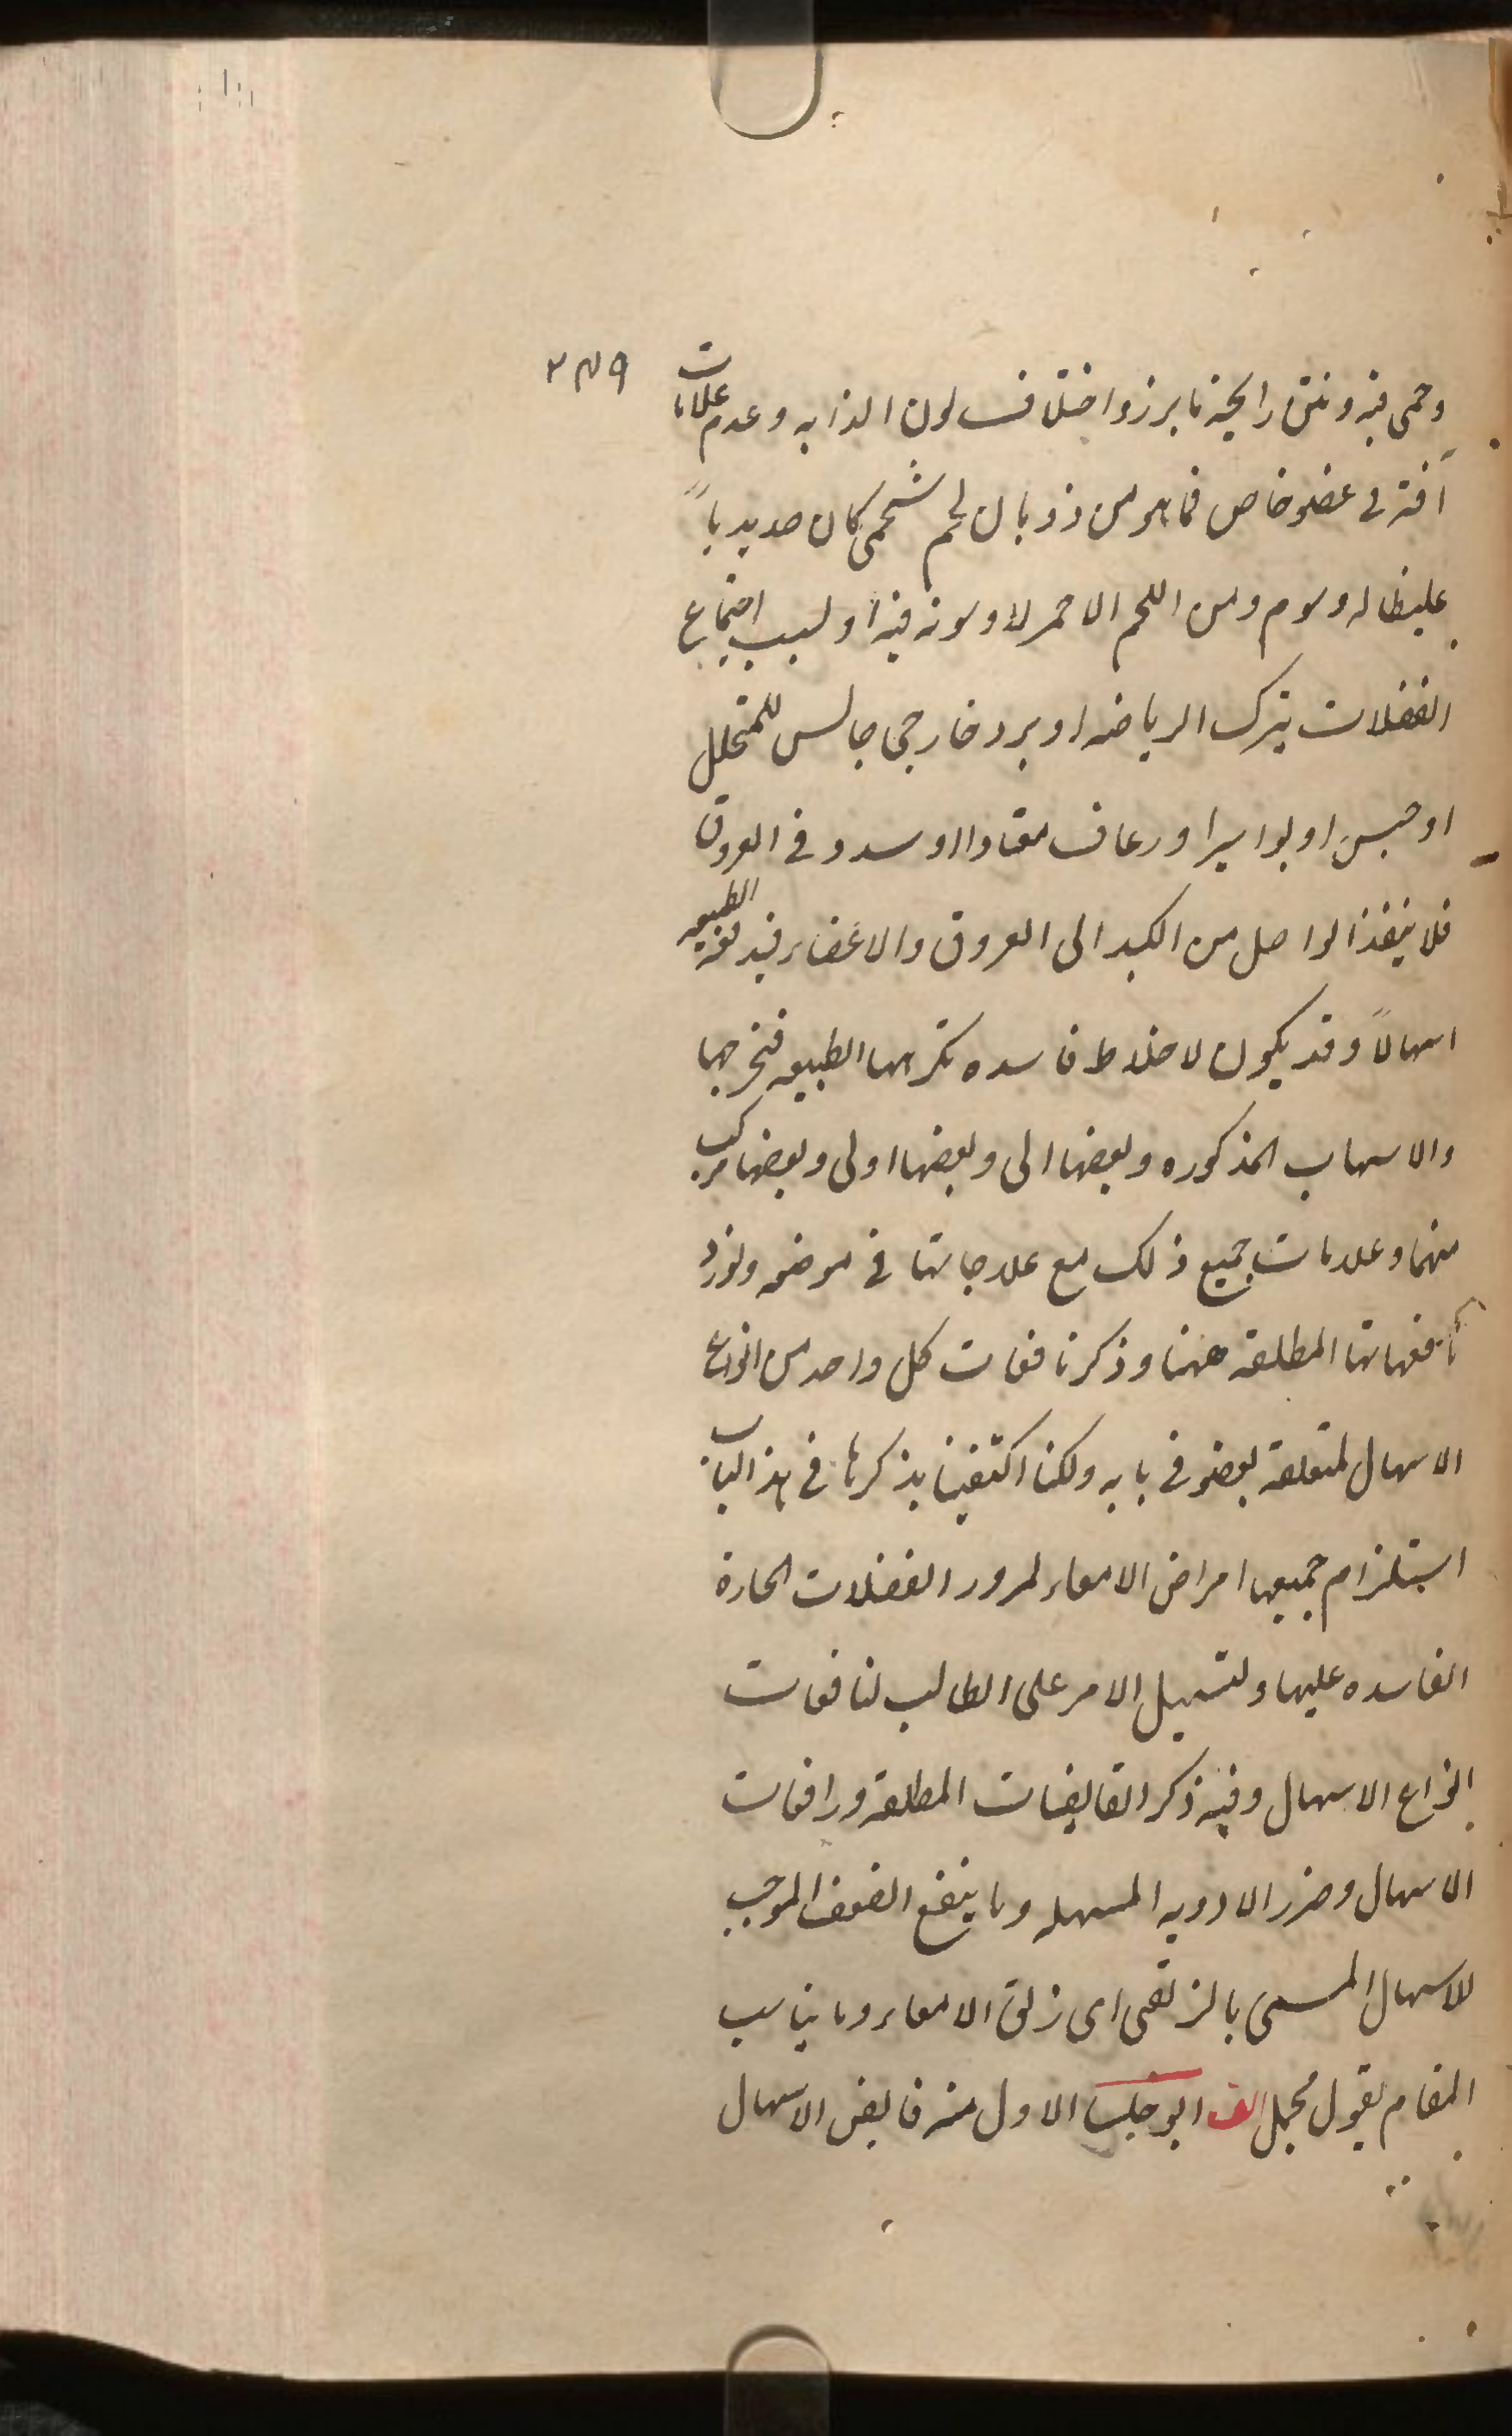 ٢٤٩
وحمى فيه ونتن رايحة ما يبرز واختلاف لون الذابه وعدم علامات
آفة فى عضو خاص فما هو من ذوبان لحم شحمى كان صديدياً
غليظا له وسوم ومن اللحم الاحمر لا دسومة فيه او لسبب اجتماع
الفضلات بترك الرياضه او برد خارجى حابس للمتحلل
او حبس او بواسير او رعاف معتاد او سدد فى العروق
فلا ينفذ الواصل من الكبد الى العروق والاعضاء فيدفعه الطبيعه
اسهالاً وقد يكون لاخلاط فاسده تكرهها الطبيعه فتخرجها
والاسباب المذكوره وبعضها الى وبعضها اولى وبعضها مركب
منهما وعلامات جميع ذلك مع علاجاتها فى موضعه ونورد
نافعاتها المطلقة ههنا وذكر نافعات كل واحد من انواع
الاسهال المتعلقة بعضو فى بابه ولكنا اكتفينا بذكرها فى هذا الباب
استلزام جميعها امراض الامعاء لمرور الفضلات الحارة
الفاسده عليها ولتسهيل الامر على الطالب لنافعات
انواع الاسهال وفيه ذكر القابضات المطلقة ورافعات
الاسهال وضرر الادويه المسهله وما ينفع الضعف الموجب
للاسهال المسمى بالزلقى اى زلق الامعاء وما يناسب
المقام بقول مجمل الف ابو حلسا الاول منه قابض الاسهال